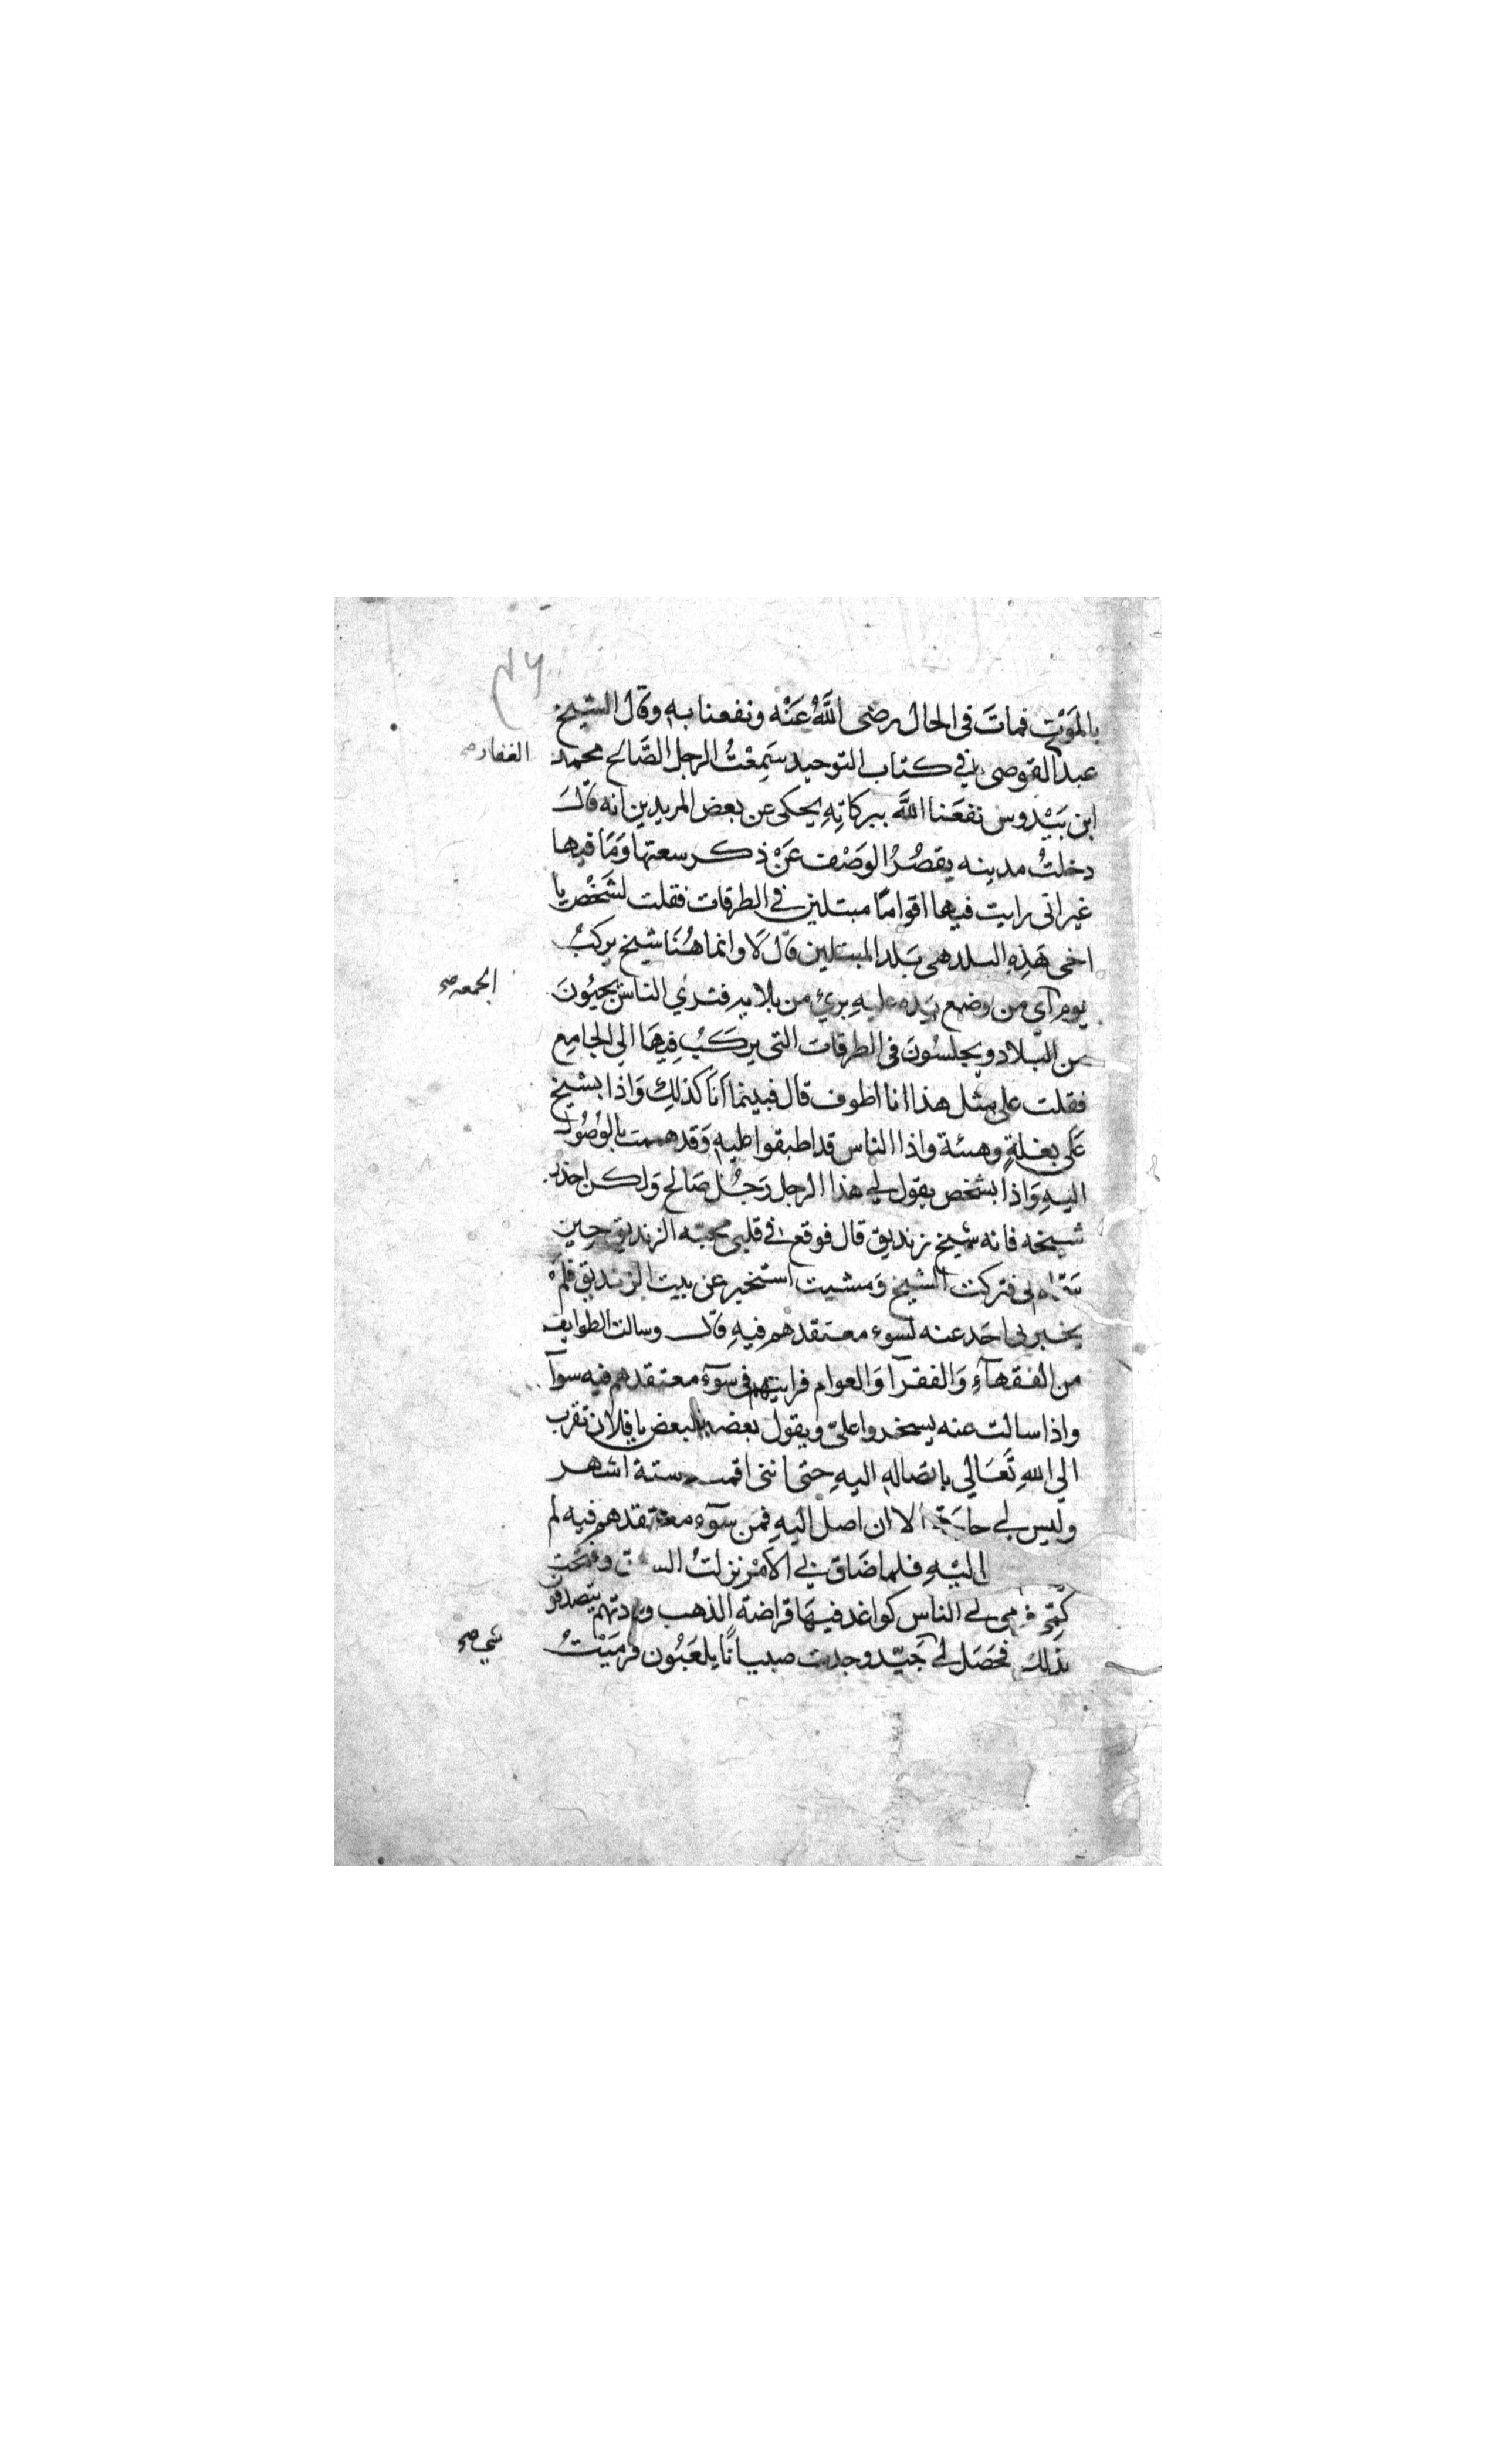 ٤٦
بالمَوْتِ فماتَ فى الحال رضى اللَّهُ عَنْه ونفعنا بهِ وقال الشيخ
عبد القوصى في كتاب التوحيد سَمِعْتُ الرجل الصَّالح محمد
الغفار صح
ابن بَيْدوس نفعَنا اللَّه ببركاتِهِ يحكى عن بعض المريدين انه قالَ
دخلتُ مدينه يقصُرُ الوَصْف عَنْ ذكر سعتها وَمَا فيها
غير انى رايت فيها اقوامًا مبتلين في الطرقات فقلت لشَخْصٍ يا
اخى هَذِهِ البلد هى بَلد المبتلين قال لَا وانما هُنَا شيخ يركبُ
يوم آي من وضع يَده عليهِ برئ من بلايه فترى الناس يجيُونَ
الجمعه صح
من البلاد ويجلسُونَ فى الطرقات التى يركَبُ فِيهَا الي الجامِع
فقلت على مِثل هذا انا اطوف قال فبينما اَنَا كذلِكَ وَاذا بشيخ
عَلى بغلةٍ وهيئة واذا الناس قد اطبقوا عليهِ وَقد هممت بالوُصُول
اليهِ وَاذا بشخص يقول لي هذا الرجل رَجُل صَالح وَلكن احذر
شيخه فانه شيخ زنديق قال فوقع في قلبى محبّه الزنديق حين
سَمّاه لى فتركت الشيخ وَمشيت استخبر عن بيت الزنديق فلَمْ
يخبرنى احَد عنه لسوء معتقدهم فيهِ قال وسالت الطوايف
من الفقهآءِ وَالفقرآ وَالعوام فرايتهم فى سوَءِ معتقدهم فيه سوآ
واذا سالت عنه يسخروا علىّ ويقول بعضهم لبعض يا فلان تقرب
الي اللهِ تَعَالي بايصاله اليهِ حتى اننى اقمت ستة اشهر
وليس لي حاجة الا ان اصل اليهِ فمن سوَءِ معتقدهم فيه لم
اليْهِ فلما ضَاق بي الاَمْر نزلتُ وفتحت
كُمّي فرمى لي الناس كواغد فيهَا قراضة الذهب وعادتهم يتصدقوا
بذلك فحَصَل لي جَيّد وجدت صبيانًا يلعَبُون فرمَيْتُ
شي صح